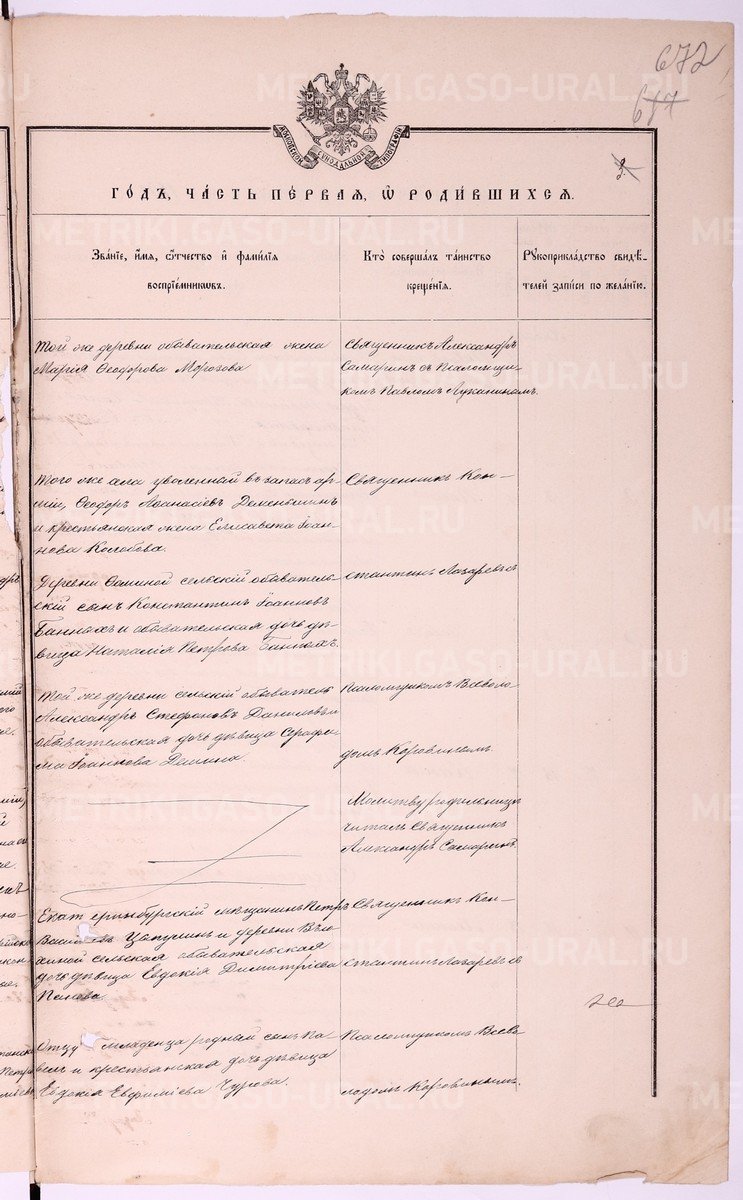 672
617
3
МОСКОВСКОЙ СѴНОДАЛЬНОЙ ТИПОГРАФІИ
ГОДЪ, ЧАСТЬ ПЕРВАЯ, Ѡ РОДИВШИХСЯ.
Званіе, имя, ѻтчество и фамилія
воспріемникѡвъ.
Кто совершалъ таинство
крещенія.
Рукоприкладство свидѣ-
телей записи по желанію.
Той же деревни обывательская жена
Марія Ѳеодорова Морозова
Священникъ Александръ
Самаринъ съ Псаломщи-
комъ Павломъ Луканинымъ.
Того же села уволенный въ запасъ ар-
міи, Ѳеодоръ Аѳанасіевъ Деменьшинъ
и крестьянская жена Елисавета Іоан-
нова Колобова.
Священникъ Кон-
Деревни Саминой сельскій обыватель-
скій сынъ Константинъ Іоанновъ
Банныхъ и обывательская дочь дѣ-
вица Наталія Петрова Банныхъ.
стантинъ Лазаревъ съ
Той же деревни сельскій обыватель
Александръ Стефановъ Даниловъ и
обывательская дочь дѣвица Серафи-
ма Іоаннова Дешина.
Псаломщикомъ Всеволо-
домъ Коровинымъ
Молитву родильницѣ
читалъ Священникъ
Александръ Самаринъ.
Екатеринбургскій мѣщанинъ Петръ
Цапулинъ и деревни
сельская обывательская
дочь дѣвица Евдокія Димитріева
Панова.
Священникъ Кон-
стантинъ Лазаревъ съ
Отцу младенца родный сынъ Па-
велъ и крестьянская дочь дѣвица
Евдокія Евфиміева Чурова.
Псаломщикомъ Всево-
лодомъ Коровинымъ.
METRIKI.GASO-URAL.RU